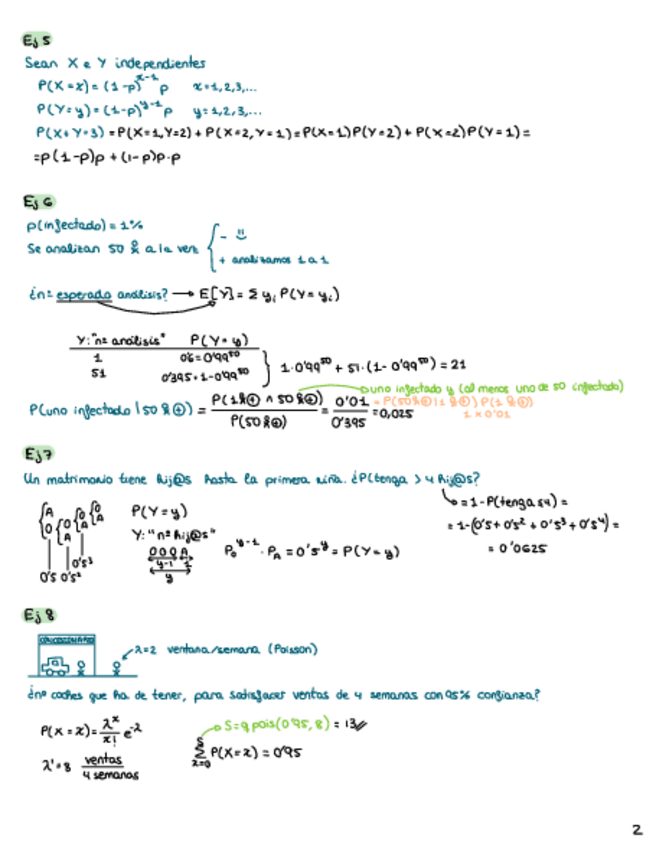 Ej 5
Sean X e Y independientes
P(X=x) = (1-p)^{x-1} p    x=1,2,3,...
P(Y=y) = (1-p)^{y-1} p    y=1,2,3,...
P(X+Y=3) = P(X=1,Y=2) + P(X=2,Y=1) = P(X=1)P(Y=2) + P(X=2)P(Y=1) =
= p(1-p)p + (1-p)p·p
Ej 6
p(infectado) = 1%
Se analizan 50 a la vez
-
+ analizamos 1 a 1
¿nº esperado análisis? → E[Y] = Σ y_i P(Y=y_i)
Y: "nº análisis"    P(Y=y)
1    0'6=0'99^{50}
51    0'395=1-0'99^{50}
1·0'99^{50} + 51·(1-0'99^{50}) = 21
uno infectado y (al menos uno de 50 infectado)
P(uno infectado | 50 ⊕) = P(1 ⊕ ∩ 50 ⊕) / P(50 ⊕) = 0'01 / 0'395 = 0,025
= P(50 ⊕ | 1 ⊕) P(1 ⊕)
1 × 0'01
Ej 7
Un matrimonio tiene hij@s hasta la primera niña. ¿P(tenga > 4 hij@s?
P(Y=y)
Y: "nº hij@s"
O O O A
y-1  1
y
A
O
A
O
A
O
A
0'5 0'5² 0'5³
P_O^{y-1} · P_A = 0'5^y = P(Y=y)
= 1-P(tenga ≤4) =
= 1-(0'5+0'5²+0'5³+0'5⁴) =
= 0'0625
Ej 8
CONCESIONARIO
λ=2 ventana/semana (Poisson)
¿nº coches que ha de tener, para satisfacer ventas de 4 semanas con 95% confianza?
P(X=x) = λ^x / x! e^{-λ}
S=qpois(0'95, 8) = 13
S
Σ P(X=x) = 0'95
x=0
λ'=8 ventas / 4 semanas
2